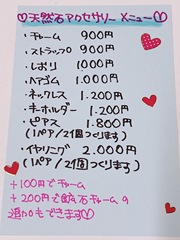 ♡天然石アクセサリー メニュー♡
・チャーム 900円
・ストラップ 900円
・しおり 1000円
・ヘアゴム 1.000円
・ネックレス 1.200円
・キーホルダー 1.200円
・ピアス 1.800円
(1ペア/2個つくります)
・イヤリング 2.000円
(1ペア/2個つくります)
+100円でチャーム
+200円で鉱石チャームの
追加もできます♡